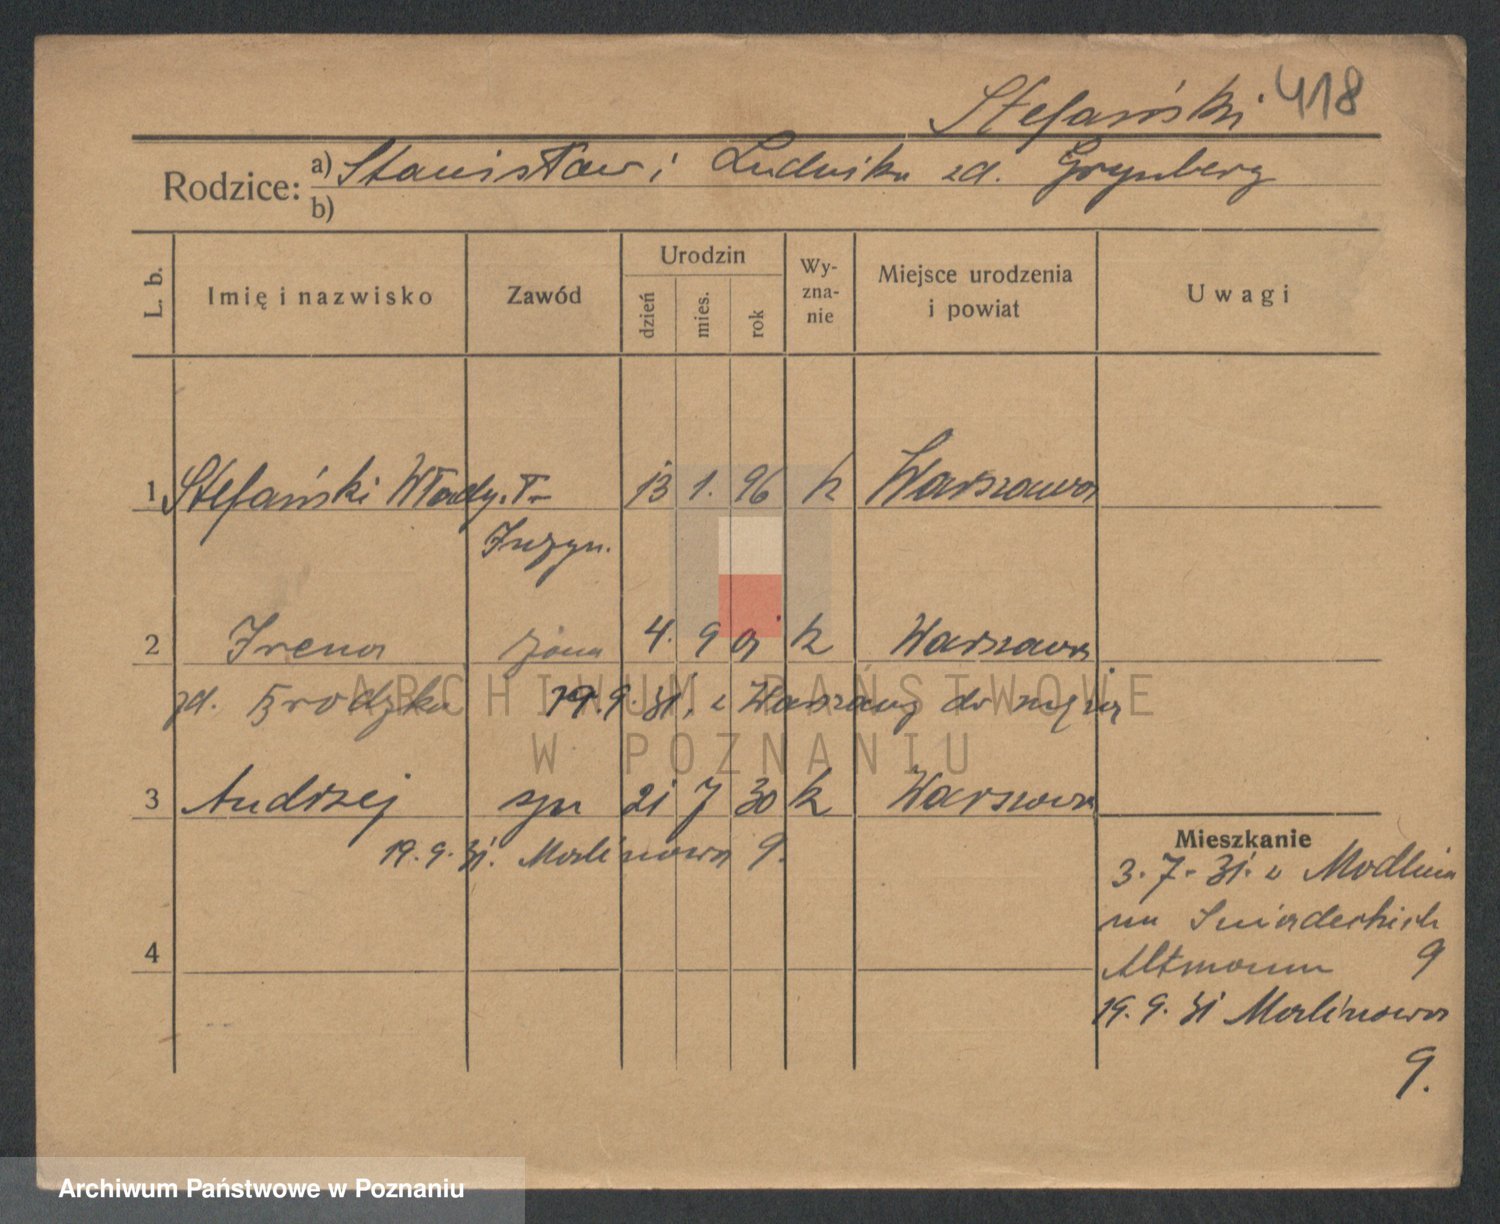 Stefański 418
Rodzice: a) Stanisław i Ludwika zd. Grynberg
b)
L. b. Imię i nazwisko Zawód Urodzin dzień mies. rok Wy-zna-nie Miejsce urodzenia i powiat Uwagi
1 Stefański Władysł- 13 1. 96 k Warszawa
Inżyn.
2 Irena żona 4. 9 01 k Warszawa
zd. Brodzka 19.9.31. z Warszawy do męża
ARCHIWUM PAŃSTWOWE
W POZNANIU
3 Andrzej syn 21 7 30 k Warszawa
19.9.31. Malinowa 9.
Mieszkanie
3.7.31. z Modlina
na Śniadeckich
Altmann 9
4
19.9.31 Malinowa
9.
Archiwum Państwowe w Poznaniu